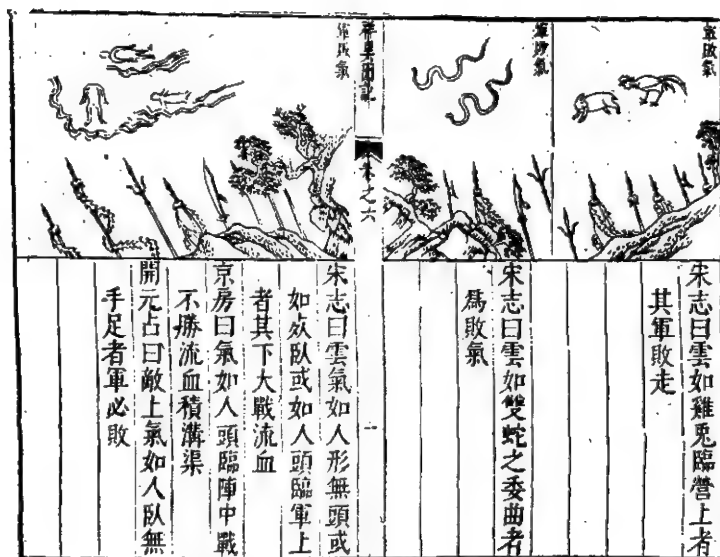 軍敗氣
宋志曰雲如雞兎臨營上者
其軍敗走
軍敗氣
宋志曰雲如雙蛇之委曲者
爲敗氣
卷之六
一
軍敗氣
宋志曰雲氣如人形無頭或
如死臥或如人頭臨軍上
者其下大戰流血
京房曰氣如人頭臨陣中戰
不勝流血積溝渠
開元占曰敵上氣如人臥無
手足者軍必敗